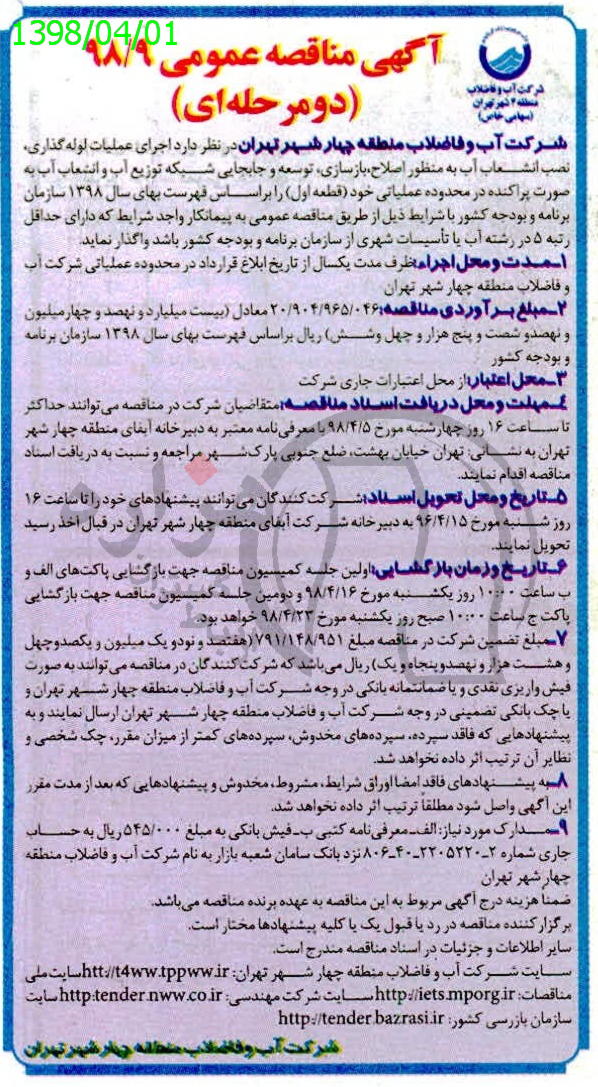 1398/04/01
آگهی مناقصه عمومی ۹۸/۹
(دومرحله‌ای)
شرکت آب و فاضلاب
منطقه ۴ شهر تهران
(سهامی خاص)
شرکت آب و فاضلاب منطقه چهار شهر تهران در نظر دارد اجرای عملیات لوله‌گذاری،
نصب انشعاب آب به منظور اصلاح، بازسازی، توسعه و جابجایی شبکه توزیع آب و انشعاب آب به
صورت پراکنده در محدوده عملیاتی خود (قطعه اول) را براساس فهرست بهای سال ۱۳۹۸ سازمان
برنامه و بودجه کشور با شرایط ذیل از طریق مناقصه عمومی به پیمانکار واجد شرایط که دارای حداقل
رتبه ۵ در رشته آب یا تأسیسات شهری از سازمان برنامه و بودجه کشور باشد واگذار نماید.
۱ـ مدت و محل اجراء: ظرف مدت یکسال از تاریخ ابلاغ قرارداد در محدوده عملیاتی شرکت آب
و فاضلاب منطقه چهار شهر تهران
۲ـ مبلغ برآوردی مناقصه: ۲۰/۹۰۴/۹۶۵/۰۴۶ معادل (بیست میلیارد و نهصد و چهارمیلیون
و نهصدو شصت و پنج هزار و چهل وشش) ریال براساس فهرست بهای سال ۱۳۹۸ سازمان برنامه
و بودجه کشور
۳ـ محل اعتبار: از محل اعتبارات جاری شرکت
۴ـ مهلت و محل دریافت اسناد مناقصه: متقاضیان شرکت در مناقصه می‌توانند حداکثر
تا ساعت ۱۶ روز چهارشنبه مورخ ۹۸/۴/۵ با معرفی‌نامه معتبر به دبیرخانه آبفای منطقه چهار شهر
تهران به نشانی: تهران خیابان بهشت، ضلع جنوبی پارک‌شهر مراجعه و نسبت به دریافت اسناد
مناقصه اقدام نمایند.
۵ـ تاریخ و محل تحویل اسناد: شرکت‌کنندگان می‌توانند پیشنهادهای خود را تا ساعت ۱۶
روز شنبه مورخ ۹۶/۴/۱۵ به دبیرخانه شرکت آبفای منطقه چهار شهر تهران در قبال اخذ رسید
تحویل نمایند.
۶ـ تاریخ و زمان بازگشایی: اولین جلسه کمیسیون مناقصه جهت بازگشایی پاکت‌های الف و
ب ساعت ۱۰:۰۰ روز یکشنبه مورخ ۹۸/۴/۱۶ و دومین جلسه کمیسیون مناقصه جهت بازگشایی
پاکت ج ساعت ۱۰:۰۰ صبح روز یکشنبه مورخ ۹۸/۴/۲۳ خواهد بود.
۷ـ مبلغ تضمین شرکت در مناقصه مبلغ ۷۹۱/۱۴۸/۹۵۱ (هفتصد و نودو یک میلیون و یکصدوچهل
و هشت هزار و نهصدوپنجاه و یک) ریال می‌باشد که شرکت‌کنندگان در مناقصه می‌توانند به صورت
فیش واریزی نقدی و یا ضمانتنامه بانکی در وجه شرکت آب و فاضلاب منطقه چهار شهر تهران و
یا چک بانکی تضمینی در وجه شرکت آب و فاضلاب منطقه چهار شهر تهران ارسال نمایند و به
پیشنهادهایی که فاقد سپرده، سپرده‌های مخدوش، سپرده‌های کمتر از میزان مقرر، چک شخصی و
نظایر آن ترتیب اثر داده نخواهد شد.
۸ـ به پیشنهادهای فاقد امضا اوراق شرایط، مشروط، مخدوش و پیشنهادهایی که بعد از مدت مقرر
این آگهی واصل شود مطلقاً ترتیب اثر داده نخواهد شد.
۹ـ مدارک مورد نیاز: الف‌ـ معرفی‌نامه کتبی ب‌ـ فیش بانکی به مبلغ ۵۴۵/۰۰۰ ریال به حساب
جاری شماره ۲ـ۲۲۰۵۲۲۰ـ۴۰ـ۸۰۶ نزد بانک سامان شعبه بازار به نام شرکت آب و فاضلاب منطقه
چهار شهر تهران
ضمناً هزینه درج آگهی مربوط به این مناقصه به عهده برنده مناقصه می‌باشد.
برگزارکننده مناقصه در رد یا قبول یک یا کلیه پیشنهادها مختار است.
سایر اطلاعات و جزئیات در اسناد مناقصه مندرج است.
سایت شرکت آب و فاضلاب منطقه چهار شهر تهران: htt://t4ww.tppww.ir سایت ملی
مناقصات: http://iets.mporg.ir سایت شرکت مهندسی: http:tender.nww.co.ir سایت
سازمان بازرسی کشور: http://tender.bazrasi.ir
شرکت آب و فاضلاب منطقه چهار شهر تهران